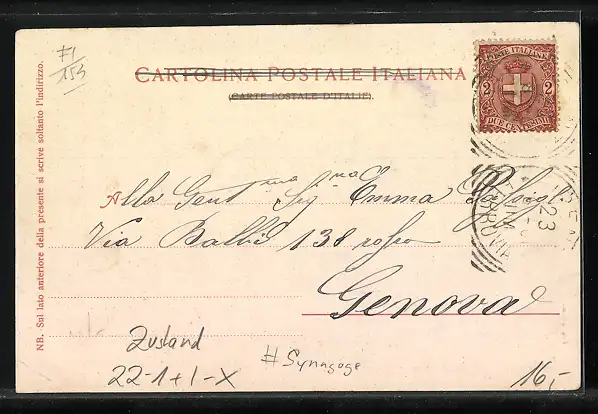 #1
153
CARTOLINA POSTALE ITALIANA
(CARTE POSTALE D'ITALIE).
POSTE ITALIANE
2 2
DUE CENTESIMI
NB. Sul lato anteriore della presente si scrive soltanto l'indirizzo.
Alla Gent ma Sig na Emma
Via Balbi 138 rosso
Genova
23
Zustand
22-1+1-X
# Synagoge
16,-